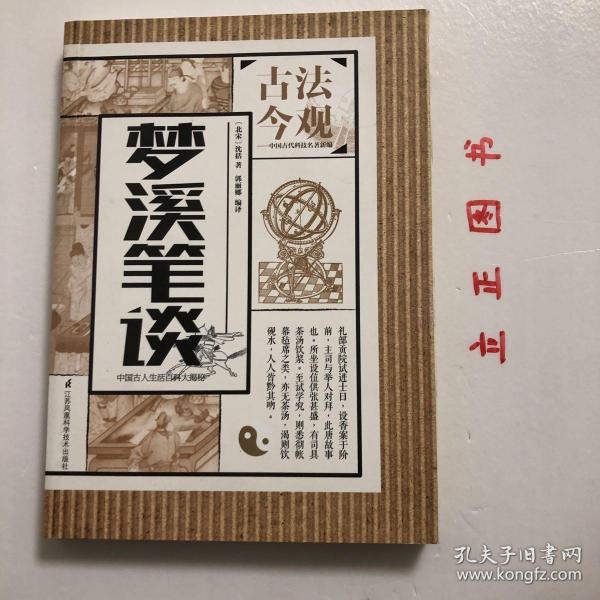 古法
今观
——中国古代科技名著新编
梦溪笔谈
〔北宋〕沈括 著
郭丽娜 编译
中国古人生活百科大揭秘
礼部贡院试进士日，设香案于阶
前，主司与举人对拜，此唐故事
也。所坐设位供张甚盛，有司具
茶汤饮浆。至试学究，则悉彻帐
幕毡席之类，亦无茶汤，渴则饮
砚水，人人皆黔其吻。
江苏凤凰科学技术出版社
立正图书
孔夫子旧书网
www.kongfz.com